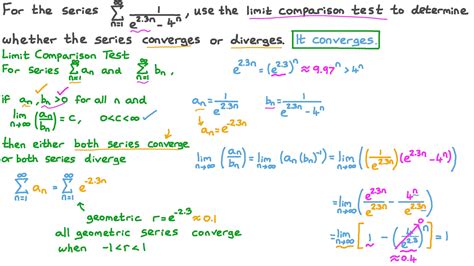 For the series $\sum_{n=1}^{\infty} \frac{1}{e^{2.3n} - 4^n}$, use the limit comparison test to determine
whether the series converges or diverges. It converges.
Limit Comparison Test
For series $\sum_{n=1}^{\infty} a_n$ and $\sum_{n=1}^{\infty} b_n$,
if $a_n, b_n > 0$ for all n and
$\lim_{n \to \infty} \left(\frac{a_n}{b_n}\right) = c$, $0 < c < \infty$ ✓
then either both series converge
or both series diverge
$\sum_{n=1}^{\infty} a_n = \sum_{n=1}^{\infty} e^{-2.3n}$
geometric $r = e^{-2.3} \approx 0.1$
all geometric series converge
when $-1 < r < 1$
$e^{2.3n} = (e^{2.3})^n \approx 9.97^n > 4^n$
$a_n = \frac{1}{e^{2.3n}}$ $b_n = \frac{1}{e^{2.3n} - 4^n}$
$a_n = e^{-2.3n}$
$\lim_{n \to \infty} \left(\frac{a_n}{b_n}\right) = \lim_{n \to \infty} (a_n (b_n)^{-1}) = \lim_{n \to \infty} \left(\left(\frac{1}{e^{2.3n}}\right)(e^{2.3n} - 4^n)\right)$
$= \lim_{n \to \infty} \left(\frac{e^{2.3n}}{e^{2.3n}} - \frac{4^n}{e^{2.3n}}\right)$
$= \lim_{n \to \infty} \left[1 - \left(\frac{4}{e^{2.3}}\right)^n\right] = 1$
0
≈ 0.4